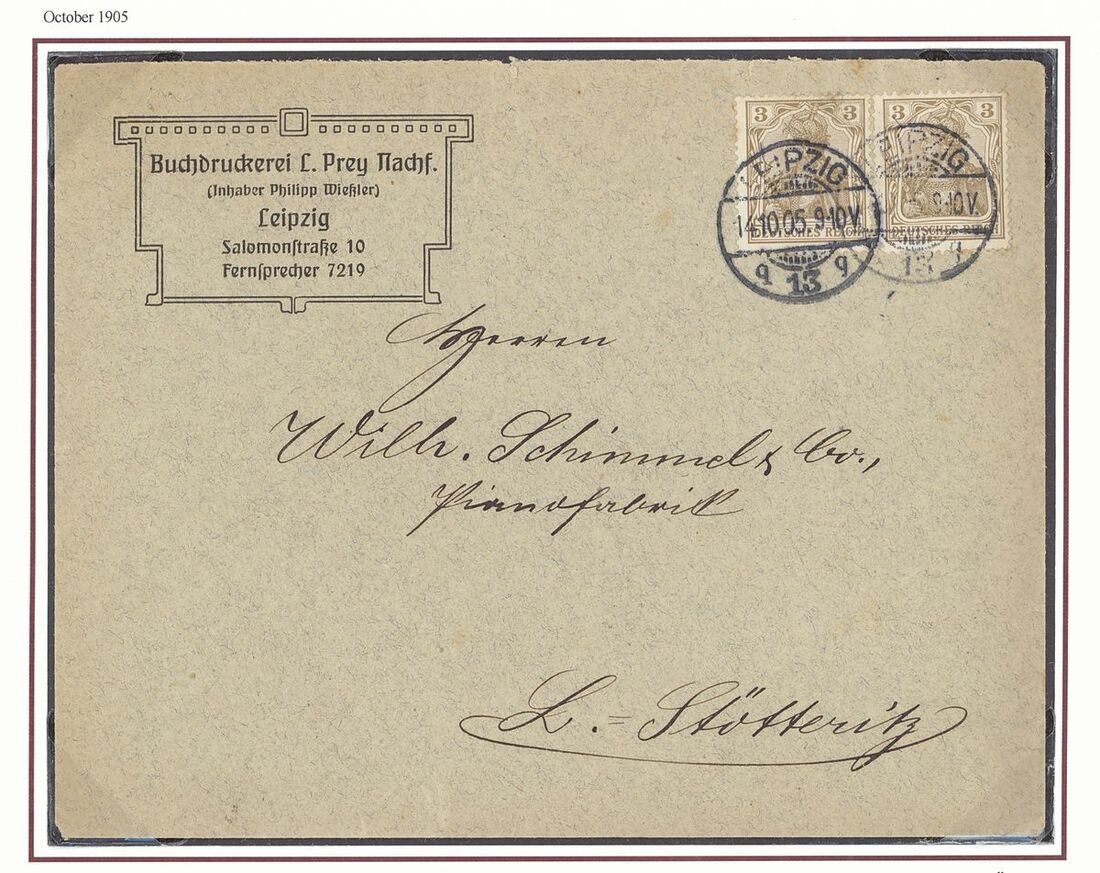 October 1905
Buchdruckerei L. Prey Nachf.
(Inhaber Philipp Wießler)
Leipzig
Salomonstraße 10
Fernsprecher 7219
3 3 3 3
DEUTSCHES REICH DEUTSCHES REICH
LEIPZIG
14.10.05 9-10V.
q 13 q
LEIPZIG
9-10V.
13 q
Herren
Wilh. Schimmel & Co.,
Pianofabrik
L.=Stötteritz